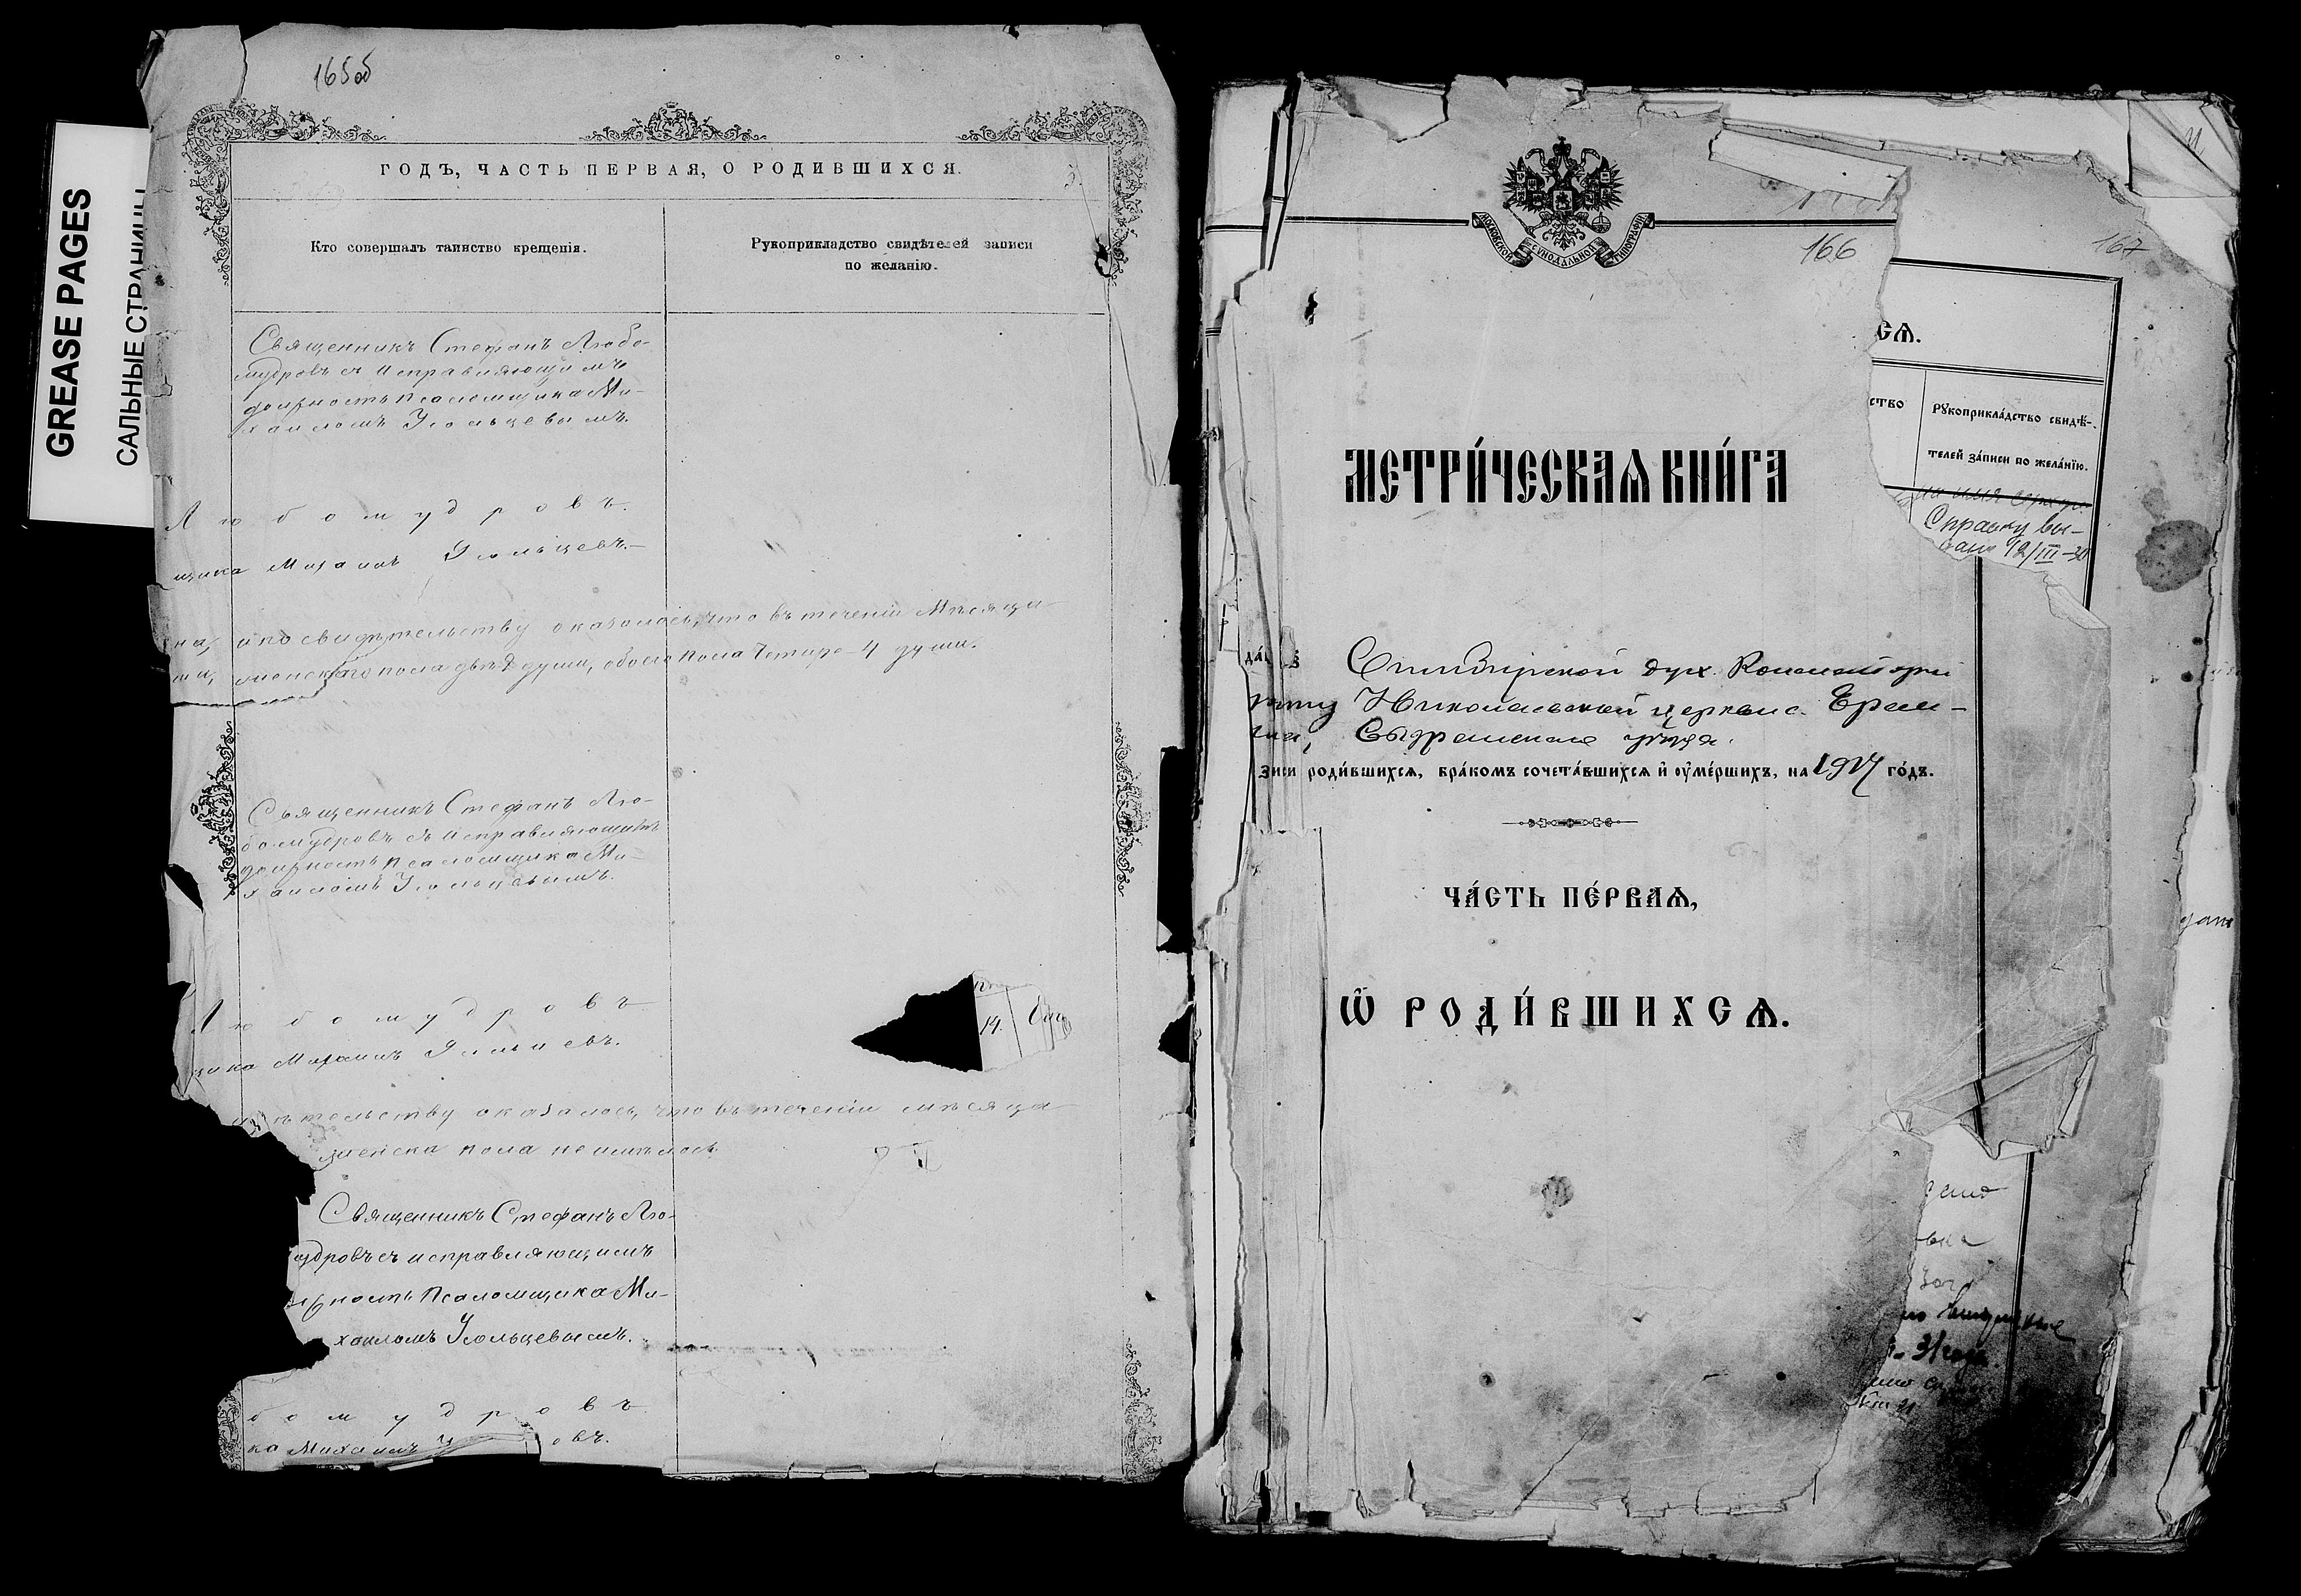 GREASE PAGES
САЛЬНЫЕ СТРАНИЦЫ
165об
ГОДЪ, ЧАСТЬ ПЕРВАЯ, О РОДИВШИХСЯ.
Кто совершалъ таинство крещенія.
Рукоприкладство свидѣтелей записи
по желанію.
Священникъ Стефанъ Любо-
мудровъ съ исправляющимъ
должность псаломщика Ми-
хаиломъ Усольцевымъ.
Любомудровъ.
щика Михаилъ Усольцевъ.
на, и по свидѣтельству оказалось, что въ теченіи мѣсяца
ши, женскаго пола двѣ души, обоего пола четыре - 4 души.
Священникъ Стефанъ Лю-
бомудровъ съ исправляющимъ
должность псаломщика Ми-
хаиломъ Усольцевымъ.
Любомудровъ
щика Михаилъ Усольцевъ.
14.
дѣтельству оказалось, что въ теченіи мѣсяца
женска пола не имѣлось
Священникъ Стефанъ Лю-
удровъ съ исправляющимъ
ность псаломщика Ми-
хаиломъ Усольцевымъ.
бомудровъ
ка Михаилъ У овъ.
МОСКОВСКОЙ СУНОДАЛЬНОЙ ТИПОГРАФІИ
166
167
МЕТРИ́ЧЕСКАѦ КНИ́ГА
СѦ.
ство
Рꙋкоприкла́дство свидѣ́-
телей за́писи по жела́нїю.
Справку вы-
дано 12/III-30
Симбирской дух. Консисторіи
Николаевской церкви с. Ерем-
Сызранскаго уѣзда.
зиси роди́вшихсѧ, бра́комъ сочета́вшихсѧ и҆ ᲂу҆ме́ршихъ, на 1917 го́дъ.
ЧА́СТЬ ПЕ́РВАѦ,
Ѽ РОДИ́ВШИХСѦ.
31 года.